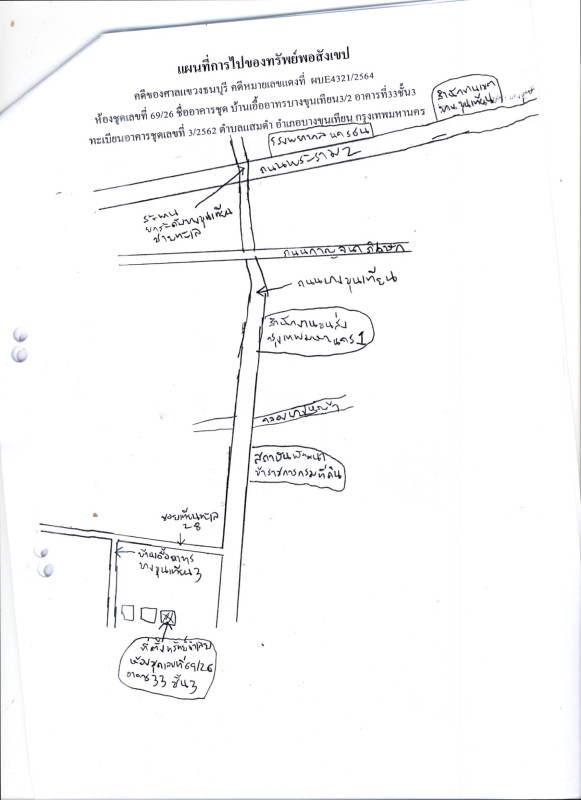 แผนที่การไปของทรัพย์พอสังเขป
คดีของศาลแขวงธนบุรี คดีหมายเลขแดงที่ ผบE4321/2564
ห้องชุดเลขที่ 69/26 ชื่ออาคารชุด บ้านเอื้ออาทรบางขุนเทียน3/2 อาคารที่33ชั้น3
ทะเบียนอาคารชุดเลขที่ 3/2562 ตำบลแสมดำ อำเภอบางขุนเทียน กรุงเทพมหานคร
สำนักงานเขต
บางขุนเทียน
โรงพยาบาลนครธน
ถนนพระราม 2
สะพาน
ยกระดับบางขุนเทียน
ชายทะเล
ถนนกาญจนาภิเษก
ถนนบางขุนเทียน
สำนักงานขนส่ง
กรุงเทพมหานคร 1
คลอง
สถาบันพัฒนา
ข้าราชการกรมที่ดิน
ซอยเทียนทะเล
28
บ้านเอื้ออาทร
บางขุนเทียน 3
ที่ตั้งทรัพย์
ห้องชุดเลขที่ 69/26
อาคาร 33 ชั้น 3